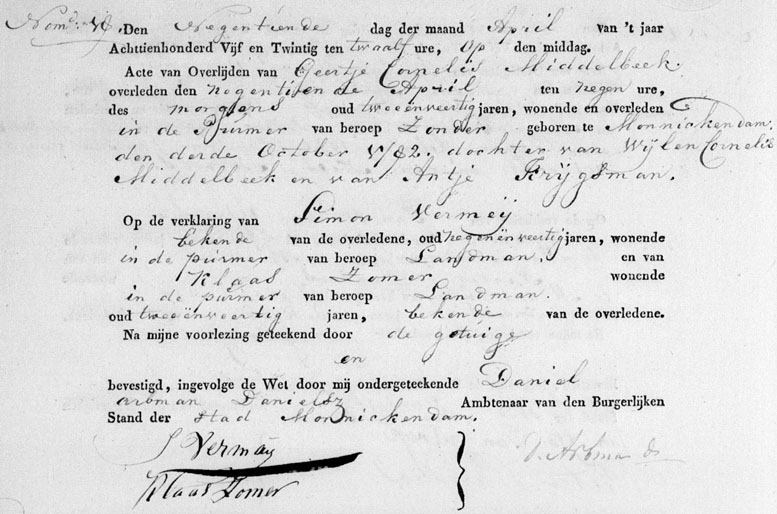 Nomr. 78. Den Negentiende dag der maand April van 't jaar
Achttienhonderd Vijf en Twintig ten twaalf ure, op den middag.
Acte van Overlijden van Geertje Cornelis Middelbeek
overleden den negentiende April ten negen ure,
des morgens oud tweeënveertig jaren, wonende en overleden
in de Purmer van beroep Zonder geboren te Monnickendam.
den derde October 1782. dochter van Wijlen Cornelis
Middelbeek en van Antje Krijgsman.
Op de verklaring van Simon Vermeij
bekende van de overledene, oud negenënveertig jaren, wonende
in de purmer van beroep Landman. en van
Klaas Zomer wonende
in de purmer van beroep Landman.
oud tweeënveertig jaren, bekende van de overledene.
Na mijne voorlezing geteekend door de getuige
en
bevestigd, ingevolge de Wet door mij ondergeteekende Daniel
arbman Danielsz Ambtenaar van den Burgerlijken
Stand der stad Monnickendam.
S Vermaij D. Arbman ds
Klaas Zomer